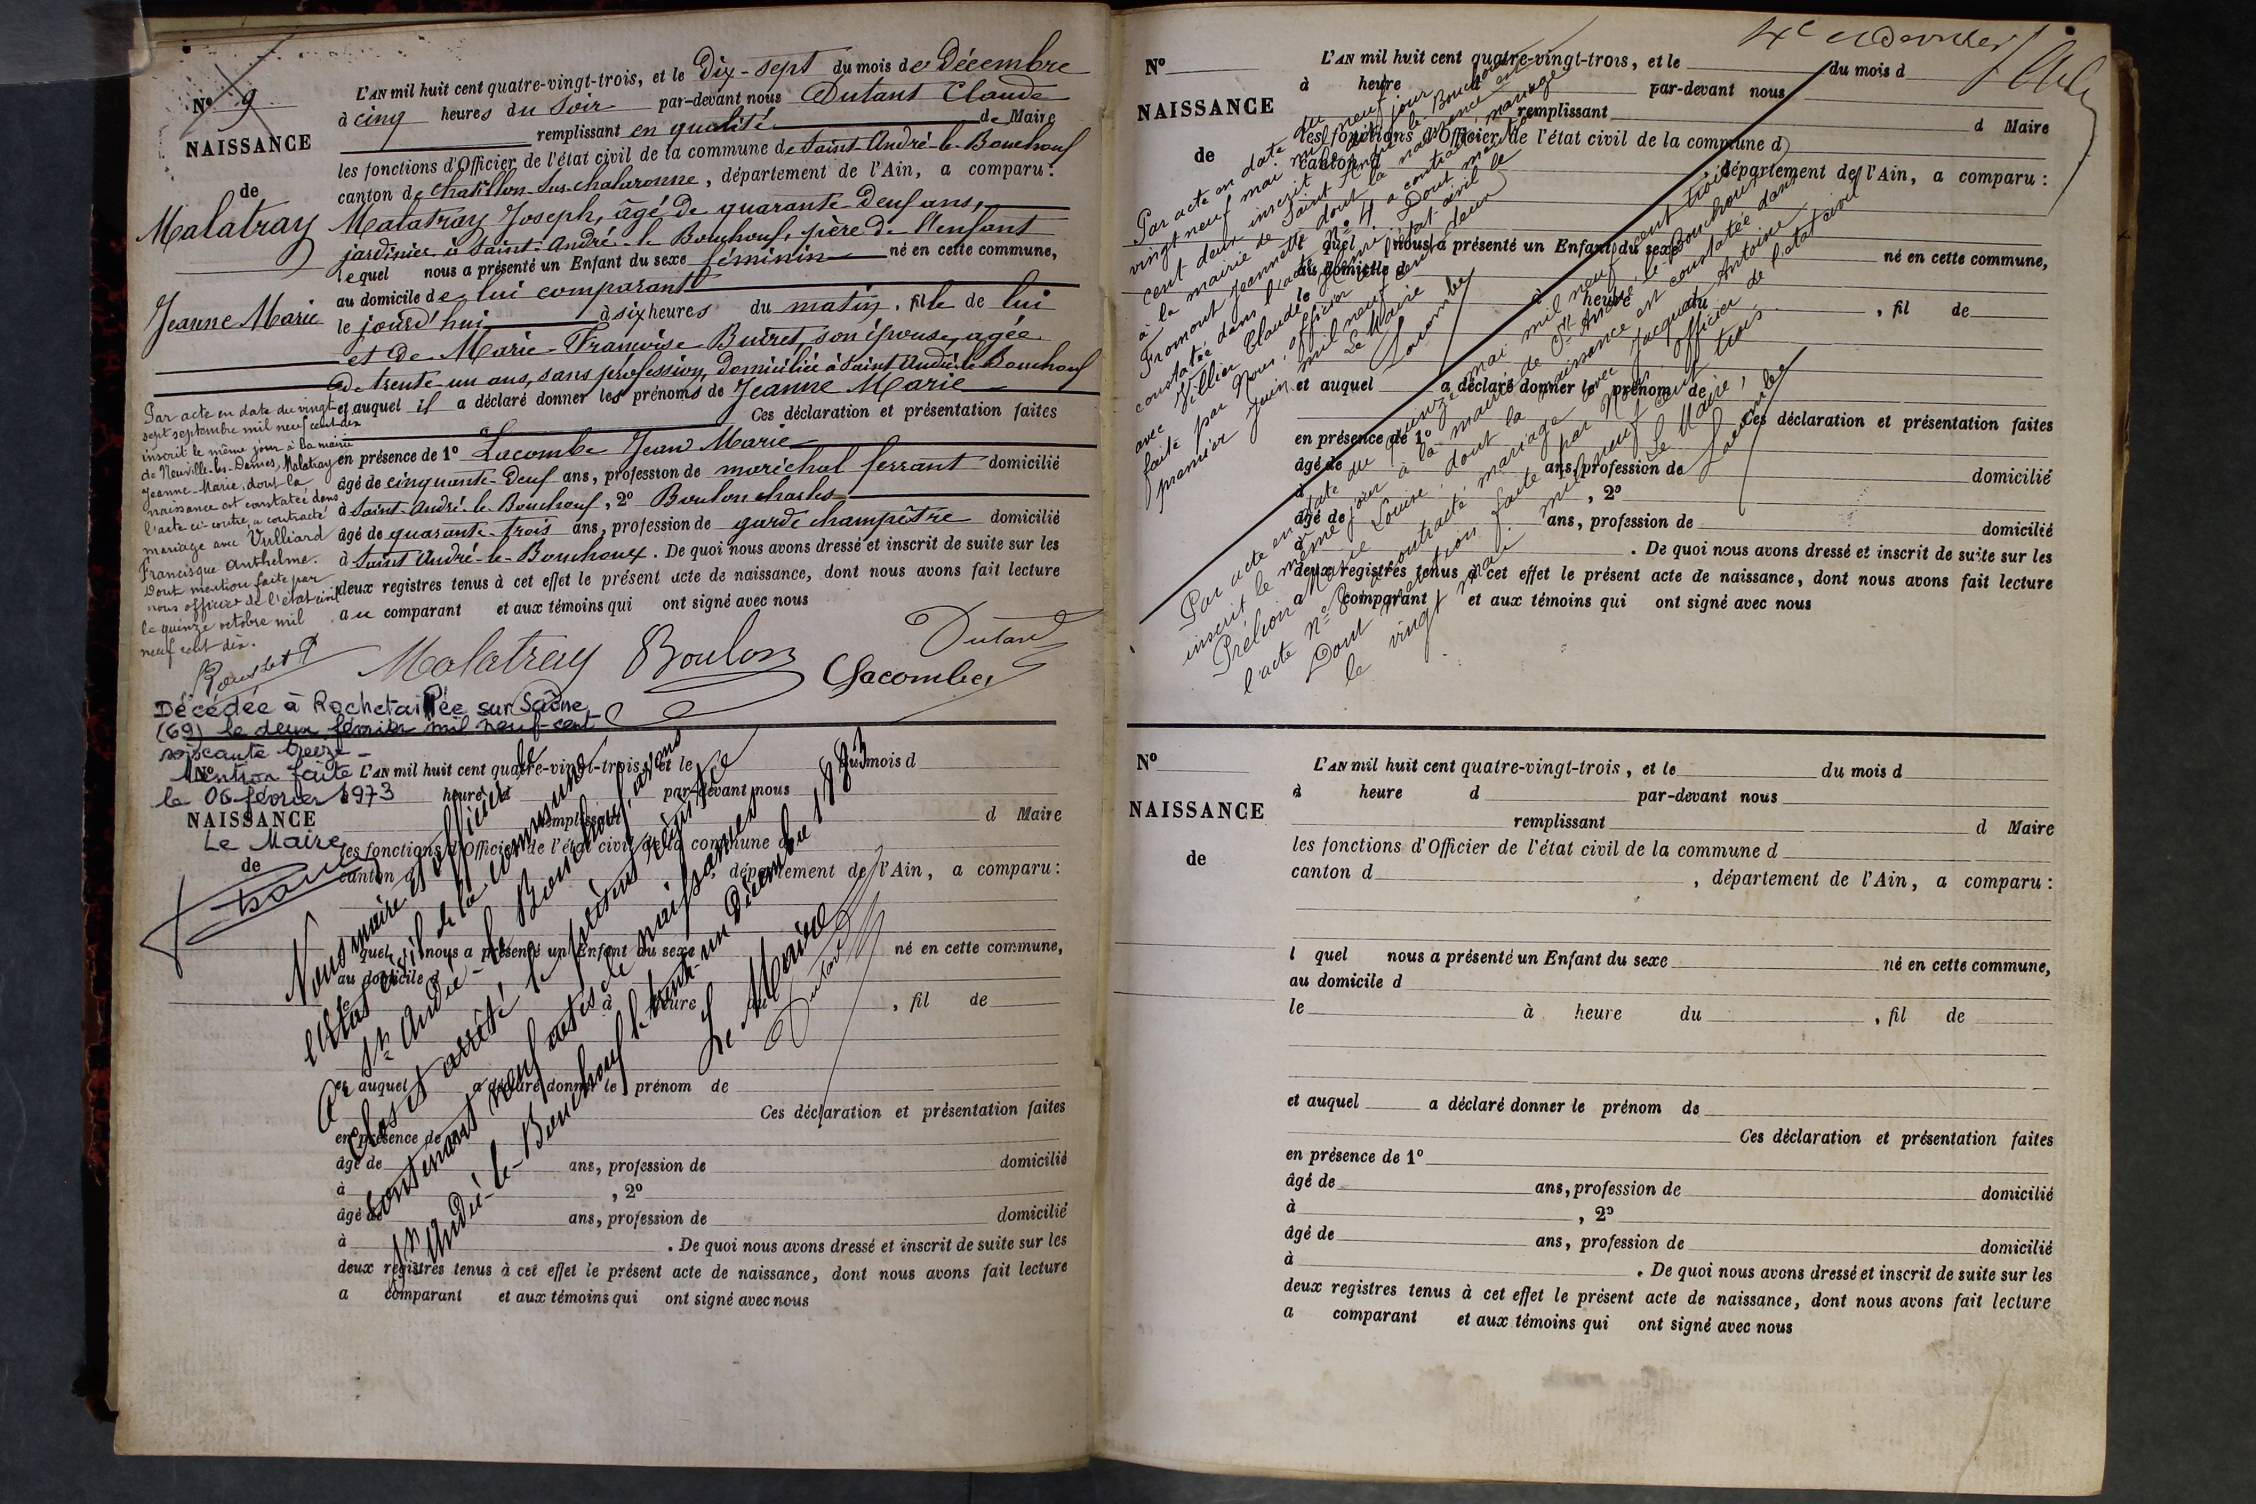 N° 9
NAISSANCE
de
Malatray
Jeanne Marie
L'AN mil huit cent quatre-vingt-trois, et le Dix-sept du mois de Décembre
à cinq heures du soir par-devant nous Dutant Claude
remplissant en qualité de Maire
les fonctions d'Officier de l'état civil de la commune de Saint-André-le-Bouchoux
canton de Chatillon-sus-chalaronne, département de l'Ain, a comparu:
Malatray Joseph, âgé de quarante-deux ans,
jardinier à Saint-André-le-Bouchoux, père de l'enfant
lequel nous a présenté un Enfant du sexe féminin né en cette commune,
au domicile de lui comparant
le jourd'hui à six heures du matin, fille de lui
et de Marie-Francoise Buiret, son épouse, agée
de trente-un ans, sans profession, domiciliée à Saint André le Bouchoux
et auquel il a déclaré donner les prénoms de Jeanne Marie
Ces déclaration et présentation faites
en présence de 1° Lacombe Jean Marie
âgé de cinquante-deux ans, profession de maréchal ferrant domicilié
à Saint-André-le-Bouchoux, 2° Boulon charles
âgé de quarante-trois ans, profession de garde champêtre domicilié
à Saint André-le-Bouchoux. De quoi nous avons dressé et inscrit de suite sur les
deux registres tenus à cet effet le présent acte de naissance, dont nous avons fait lecture
au comparant et aux témoins qui ont signé avec nous
Malatray Boulon Dutant
Lacombe
Par acte en date du vingt-
sept septembre mil neuf cent dix
inscrit le même jour à la mairie
de Neuville-les-Dames, Malatray
Jeanne-Marie, dont la
naissance est constatée dans
l'acte ci-contre, a contracté
mariage avec Vulliard
Francisque Anthelme.
Dont mention faite par
nous officier de l'état civil
le quinze octobre mil
neuf cent dix.
Décédée à Rochetaillée sur Saône
(69) le deux février mil neuf-cent-
soixante treize -
Mention faite
le 06 février 1973
Le Maire
N°
NAISSANCE
de
L'AN mil huit cent quatre-vingt-trois, et le du mois d
heure d par-devant nous
remplissant d Maire
les fonctions d'Officier de l'état civil de la commune d
canton d , département de l'Ain, a comparu:
quel nous a présenté un Enfant du sexe né en cette commune,
au domicile d
le à heure du , fil de
et auquel a déclaré donner le prénom de
Ces déclaration et présentation faites
en présence de
âgé de ans, profession de domicilié
à , 2°
âgé de ans, profession de domicilié
à . De quoi nous avons dressé et inscrit de suite sur les
deux registres tenus à cet effet le présent acte de naissance, dont nous avons fait lecture
a comparant et aux témoins qui ont signé avec nous
Nous maire et officier de
l'état civil de la commune de
St André-le-Bouchoux, avons
clos et arrêté le présent régistre
contenant neuf actes de naissances
St André-le-Bouchoux le trente-un Décembre 1883
Le Maire
Dutant
N°
NAISSANCE
de
L'AN mil huit cent quatre-vingt-trois, et le du mois d
à heure d par-devant nous
remplissant d Maire
les fonctions d'Officier de l'état civil de la commune d
canton d département de l'Ain, a comparu:
l quel nous a présenté un Enfant du sexe né en cette commune,
au domicile d
le à heure du , fil de
et auquel a déclaré donner le prénom de
Ces déclaration et présentation faites
en présence de 1°
âgé de ans, profession de domicilié
à , 2°
âgé de ans, profession de domicilié
à . De quoi nous avons dressé et inscrit de suite sur les
deux registres tenus à cet effet le présent acte de naissance, dont nous avons fait lecture
a comparant et aux témoins qui ont signé avec nous
Par acte en date du
vingt neuf mai mil neuf
cent deux inscrit le même jour
à la mairie de Saint André-le-Bouchoux
Fromont Jeannette dont la naissance est
constatée dans l'acte N° 4 a contracté mariage
avec Villier Claude Henri. Dont mention
faite par Nous, officier de l'état-civil le
premier juin mil neuf cent deux
Le Maire
Lacombe
Par acte en date du quinze mai mil neuf cent trois
inscrit le même jour à la mairie de St André-le-Bouchoux
Prélion Marie Louise, dont la naissance est constatée dans
l'acte N° a contracté mariage avec Jacquet Antoine
Dont mention faite par Nous, officier de l'état civil
le vingt mai mil neuf cent trois.
Le Maire,
Lacombe
N°
NAISSANCE
de
L'AN mil huit cent quatre-vingt-trois, et le du mois d
à heure d par-devant nous
remplissant d Maire
les fonctions d'Officier de l'état civil de la commune d
canton d , département de l'Ain, a comparu:
l quel nous a présenté un Enfant du sexe né en cette commune,
au domicile d
le à heure du , fil de
et auquel a déclaré donner le prénom de
Ces déclaration et présentation faites
en présence de 1°
âgé de ans, profession de domicilié
à , 2°
âgé de ans, profession de domicilié
à . De quoi nous avons dressé et inscrit de suite sur les
deux registres tenus à cet effet le présent acte de naissance, dont nous avons fait lecture
a comparant et aux témoins qui ont signé avec nous